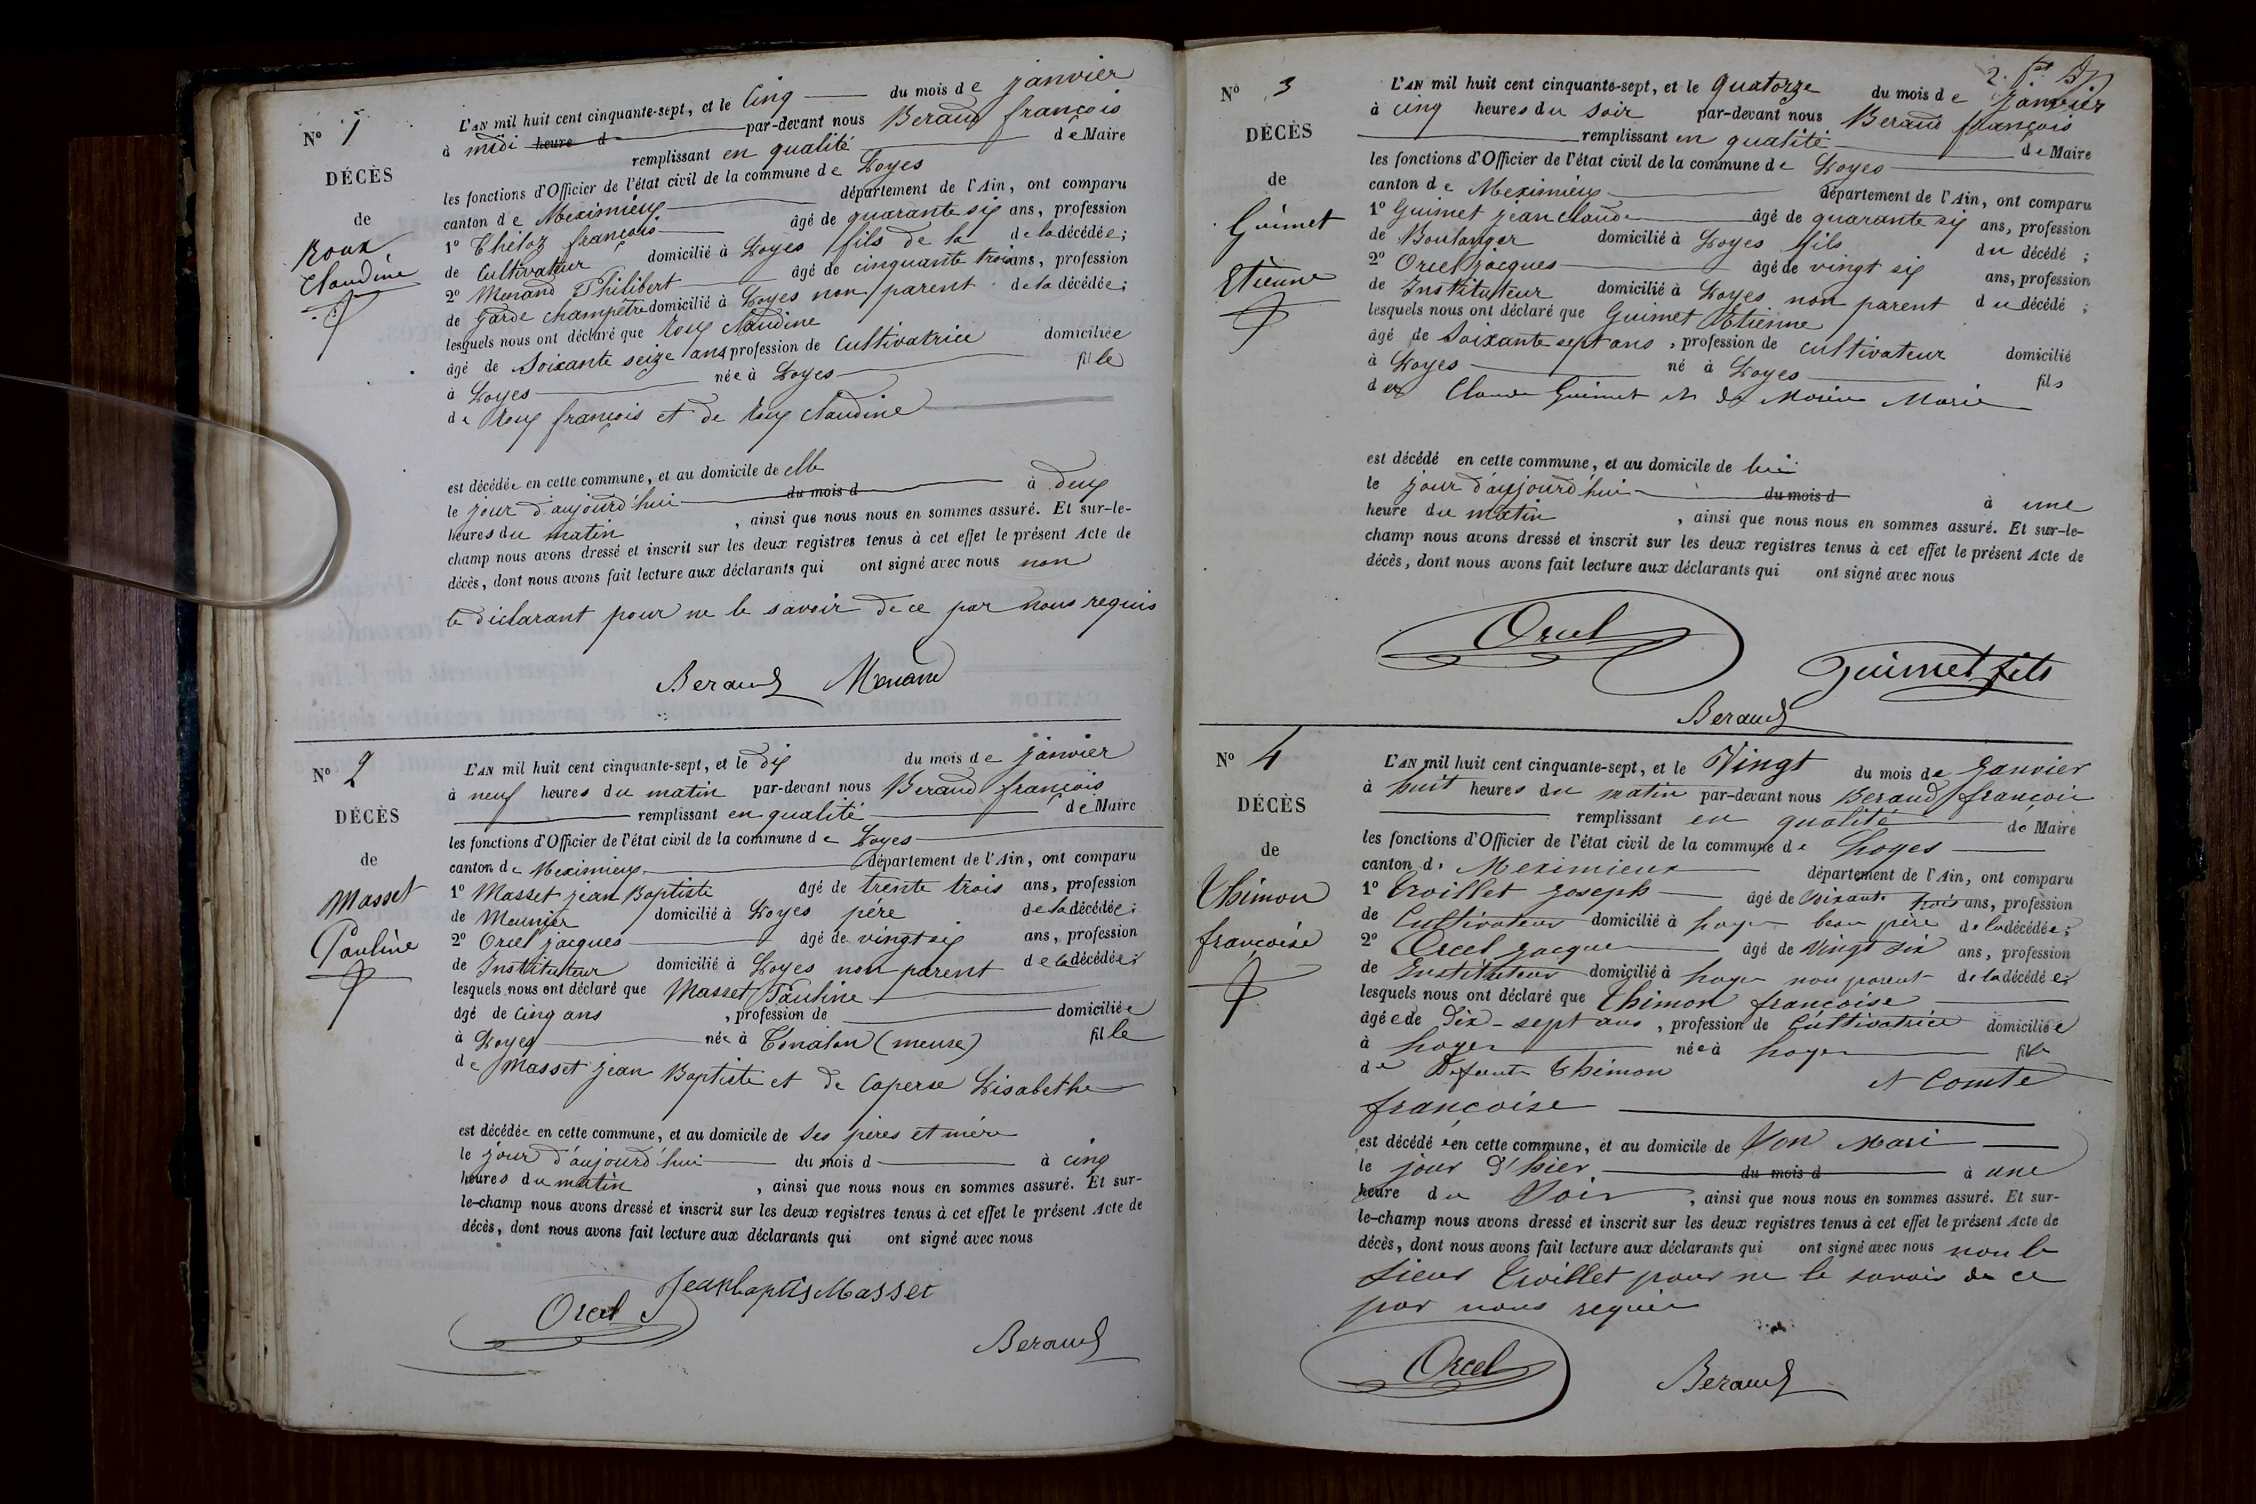 N° 1
DÉCÈS
de
Roux
Claudine
L'AN mil huit cent cinquante-sept, et le Cinq du mois de janvier
à midi heure d par-devant nous Beraud françois
remplissant en qualité de Maire
les fonctions d'Officier de l'état civil de la commune de Loyes
canton de Meximieux département de l'Ain, ont comparu
1° Théloz françois âgé de quarante six ans, profession
de Cultivateur domicilié à Loyes fils de la de la décédée;
2° Menand Philibert âgé de cinquante trois ans, profession
de Garde champêtre domicilié à Loyes non parent de la décédée;
lesquels nous ont déclaré que Roux Claudine
âgé de Soixante seize ans profession de Cultivatrice domiciliée
à Loyes née à Loyes fille
de Roux françois et de Roux Claudine
est décédée en cette commune, et au domicile de elle
le jour d'aujourd'hui du mois d à deux
heures du matin , ainsi que nous nous en sommes assuré. Et sur-le-
champ nous avons dressé et inscrit sur les deux registres tenus à cet effet le présent Acte de
décès, dont nous avons fait lecture aux déclarants qui ont signé avec nous non
le déclarant pour ne le savoir de ce par nous requis
Beraud Menand
N° 2
DÉCÈS
de
Masset
Pauline
L'AN mil huit cent cinquante-sept, et le dix du mois de janvier
à neuf heures du matin par-devant nous Beraud françois
remplissant en qualité de Maire
les fonctions d'Officier de l'état civil de la commune de Loyes
canton de Meximieux département de l'Ain, ont comparu
1° Masset jean Baptiste âgé de trente trois ans, profession
de Meunier domicilié à Loyes père de la décédée;
2° Orcel jacques âgé de vingt six ans, profession
de Instituteur domicilié à Loyes non parent de la décédée;
lesquels nous ont déclaré que Masset Pauline
âgé de Cinq ans , profession de domiciliée
à Loyes née à (meuse) fille
de Masset jean Baptiste et de Caperse Lisabethe
est décédée en cette commune, et au domicile de ses pères et mère
le jour d'aujourd'hui du mois d à cinq
heures du matin , ainsi que nous nous en sommes assuré. Et sur-
le-champ nous avons dressé et inscrit sur les deux registres tenus à cet effet le présent Acte de
décès, dont nous avons fait lecture aux déclarants qui ont signé avec nous
Jeanbaptis Masset
Orcel
Beraud
2
N° 3
DÉCÈS
de
Guimet
Etienne
L'AN mil huit cent cinquante-sept, et le Quatorze du mois de janvier
à cinq heures du soir par-devant nous Beraud françois
remplissant en qualité de Maire
les fonctions d'Officier de l'état civil de la commune de Loyes
canton de Meximieux département de l'Ain, ont comparu
1° Guimet jean Claude âgé de quarante six ans, profession
de Boulanger domicilié à Loyes fils du décédé ;
2° Orcel jacques âgé de vingt six ans, profession
de Instituteur domicilié à Loyes non parent du décédé ;
lesquels nous ont déclaré que Guimet Etienne
âgé de Soixante sept ans , profession de cultivateur domicilié
à Loyes né à Loyes fils
de Claude Guimet et de Morin Marie
est décédé en cette commune, et au domicile de lui
le jour d'aujourd'hui du mois d à une
heure du matin , ainsi que nous nous en sommes assuré. Et sur-le-
champ nous avons dressé et inscrit sur les deux registres tenus à cet effet le présent Acte de
décès, dont nous avons fait lecture aux déclarants qui ont signé avec nous
Orcel
Guimet fils
Beraud
N° 4
DÉCÈS
de
Thimon
françoise
L'AN mil huit cent cinquante-sept, et le Vingt du mois de Janvier
à huit heures du matin par-devant nous Beraud françois
remplissant en qualité de Maire
les fonctions d'Officier de l'état civil de la commune de Loyes
canton de Meximieux département de l'Ain, ont comparu
1° Troillet Joseph âgé de Soixante trois ans, profession
de Cultivateur domicilié à Loyes beau père de la décédée;
2° Orcel Jacques âgé de Vingt Six ans, profession
de Instituteur domicilié à Loyes non parent de la décédée;
lesquels nous ont déclaré que Thimon françoise
âgée de Dix-sept ans , profession de Cultivatrice domiciliée
à Loyes née à Loyes fille
de Defunte Thimon et Comte
françoise
est décédée en cette commune, et au domicile de Son Mari
le jour d'hier du mois d à une
heure du Soir , ainsi que nous nous en sommes assuré. Et sur-
le-champ nous avons dressé et inscrit sur les deux registres tenus à cet effet le présent Acte de
décès, dont nous avons fait lecture aux déclarants qui ont signé avec nous non le
sieur Troillet pour ne le savoir de ce
par nous requis
Orcel
Beraud